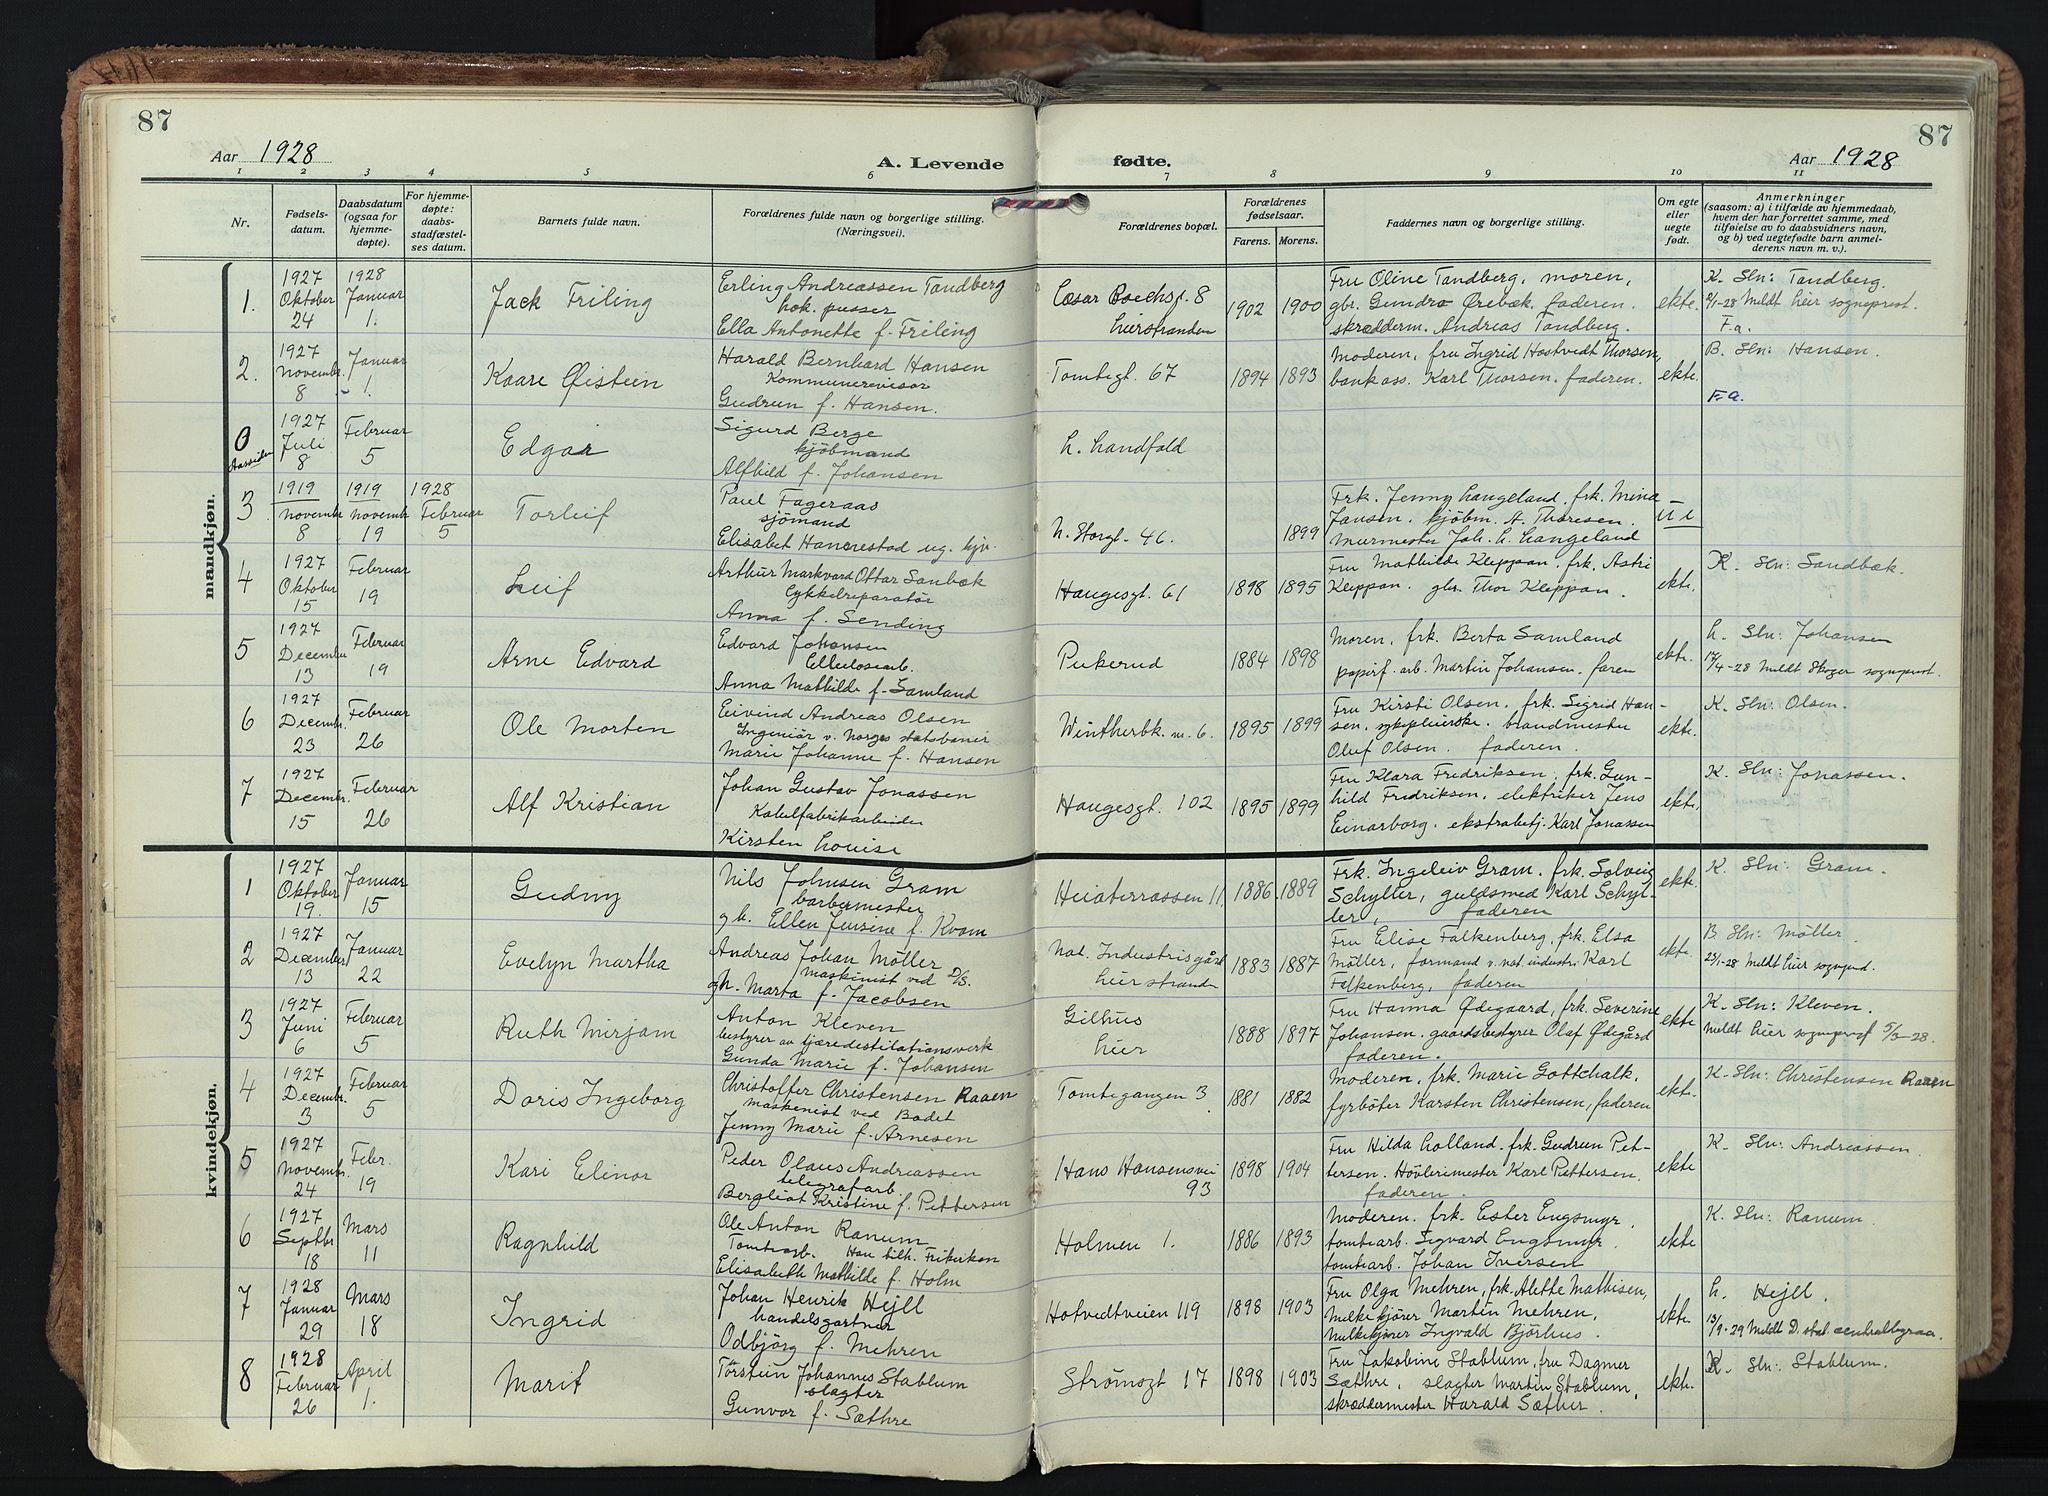 87
87
Aar 1928
A. Levende
fødte.
Aar 1928
1 2 3 4 5 6 7 8 9 10 11
Nr.
Fødsels-
datum.
Daabsdatum
(ogsaa for
hjemme-
døpte).
For hjemme-
døpte:
daabs-
stadfæstel-
ses datum.
Barnets fulde navn.
Forældrenes fulde navn og borgerlige stilling.
(Næringsvei).
Forældrenes bopæl.
Forældrenes
fødselsaar.
Farens.
Morens.
Faddernes navn og borgerlige stilling.
Om egte
eller
uegte
født.
Anmerkninger
(saasom: a) i tilfælde av hjemmedaab,
hvem der har forrettet samme, med
tilføielse av to daabsvidners navn,
og b) ved uegtefødte barn anmel-
derens navn m. v.).
mandkjøn.
1.
1927
Oktober
24
1928
Januar
1.
Jack Friling
Erling Andreassen Tandberg
hok. pusser
Ella Antonette f. Friling
Cæsar Boechsg. 8
Lierstranden
1902
1900
Fru Oline Tandberg, moren,
gbr. Gundro Ørebæk. faderen.
skrædderm. Andreas Tandberg.
ekte.
K. Sln: Tandberg.
9/1-28 Meldt Lier sogneprest.
F.a.
2.
1927
Novembr.
8
Januar
- 1.
Kaare Øistein
Harald Bernhard Hansen
Kommunerevisor
Gudrun f. Hansen.
Tomtegt. 67
1894
1893
Moderen, fru Ingrid Hostvedt Thorsen,
bankass. Karl Thorsen. faderen.
ekte.
B. Sln: Hansen.
F.a.
0
Aassiden
1927
Juli
8
Februar
5
Edgar
Sigurd Berge
kjøbmand
Alfhild f. Johansen
L. Landfald
3
1919
Novembr
8
1919
Novembr
19
1928
Februar
5
Torleif
Paul Fageraas
sjömand
Elisabet Hannestad ug. hjv.
N. Storgt. 46.
1899
Frk. Jenny Langeland, frk. Mina
Jansen. kjøbm. A. Thoresen.
murmester Joh. L. Langeland
U e
4
1927
Oktober
15
Februar
19
Leif
Arthur Markvard Ottar Sanbæk
Cykkelreparatør
Anna f. Sending
Haugesgt. 61
1898
1895
Fru Mathilde Kleppan, frk. Astri
Kleppan. gbr. Thor Kleppan.
ekte.
K. Sln: Sandbæk.
5
1927
December
13
Februar
19
Arne Edvard
Edvard Johansen
Cellulosearb.
Anna Mathilde f. Samland
Pukerud
1884
1898
Moren, frk. Berta Samland
papirf. arb. Martin Johansen, faren
ekte.
L. Sln: Johansen
17/4-28 Meldt Skoger sogneprest.
6
1927
Decembr.
23
Februar
26
Ole Morten
Eivind Andreas Olsen
Ingeniør v. Norges statsbaner
Marie Johanne f. Hansen
Wintherbk. n. 6.
1895
1899
Fru Kirsti Olsen, frk. Sigrid Han-
sen, sykepleierske. brandmester
Oluf Olsen. faderen.
ekte.
K. Sln: Olsen.
7
1927
Decembr.
15
Februar
26
Alf Kristian
Johan Gustav Jonassen
Kabelfabrikarbeider
Kirsten Louise
Haugesgt. 102
1895
1899
Fru Klara Fredriksen, frk. Gun-
hild Fredriksen, elektriker Jens
Einarborg. ekstrabetj. Karl Jonassen
ekte,
K. Sln: Jonassen.
kvindekjøn.
1
1927
Oktober
19.
Januar
15
Gudny
Nils Johnsen Gram
barbermester
g.h. Ellen Jensine f. Kvam
Heiaterrassen 11,
1886.
1889
Frk. Ingeleiv Gram, frk. Solveig
Schytter, guldsmed Karl Schyt-
ter, faderen
ekte.
K. Sln: Gram.
2
1927
December
13
Januar
22
Evelyn Martha
Andreas Johan Möller
maskinist ved D/S.
g.h. Marta f. Jacobsen
Nat. Industris gård
Lierstranden
1883
1887
Fru Elise Falkenberg, frk. Elsa
Möller, formand v. nat. industri Karl
Falkenberg, faderen
ekte.
B. Sln: Möller.
23/1-28 Meldt Lier sogneprd.
3
1927
Juni
6
Februar
5
Ruth Mirjam
Anton Kleven
bestyrer av tjæredestilationsverk
Gunda Marie f. Johansen
Gilhus
Lier
1888
1897
Fru Hanna Ødegaard, frk. Severine
Johansen. gaardsbestyrer Olaf Ødegård
faderen.
ekte
K. Sln: Kleven.
Meldt Lier sogneprest 5/3-28.
4
1927
Decembr.
3
Februar
5
Doris Ingeborg
Christoffer Christensen Raaen
maskinist ved Badet
Jenny Marie f. Arnesen
Tomtegangen 3.
1881
1882
Moderen, frk. Marie Gottchalk,
fyrböter Karsten Christensen, faderen
ekte.
K. Sln: Christensen Raaen
5
1927
Novembr.
24
Febr.
19
Kari Elinor
Peder Olaus Andreassen
telegrafarb
Bergliot Kristine f. Pettersen
Hans Hansensvei
93
1898
1904
Fru Hilda Lolland. frk. Gudrun Pet-
tersen. Hövlerimester Karl Pettersen.
faderen.
ekte
K. Sln: Andreassen.
6
1927
Septbr
18
Mars
11
Ragnhild
Ole Anton Ranum
Tomtearb. Han tilh. Frikirken
Elisabeth Mathilde f. Holm
Holmen 1.
1886
1893
Moderen. frk. Ester Engsmyr.
tomtearb. Sigvard Engsmyr.
tomtearb. Johan Iversen
ekte
K. Sln: Ranum.
7
1928
Januar
29
Mars
18
Ingrid
Johan Henrik Hejll
handelsgartner
Odbjörg f. Mehren
Hotvedtveien 119
1898
1903
Fru Olga Mehren, frk. Alette Mathisen,
Melkekjører Martin Mehren,
Melkekjører Ingvald Bjørhus.
ekte.
L. Hejll.
13/9-29 Meldt D. stat. centralbyraa.
8
1928
Februar
26
April
1.
Marit
Törstein Johannes Stablum
slagter
Gunvor f. Sæthre
Strömsgt 17
1898
1903
Fru Jakobine Stablum, fru Dagmer
Sæthre, slagter Martin Stablum,
skræddermester Harald Sæther.
ekte.
K. Sln: Stablum.